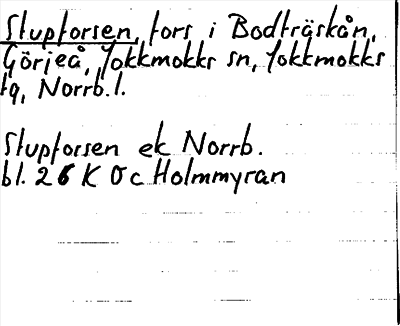 Stupforsen, fors i Bodträskån,
Görjeå, Jokkmokks sn, Jokkmokks
tg, Norrb.l.
Stupforsen ek Norrb.
bl. 26 K 0c Holmmyran